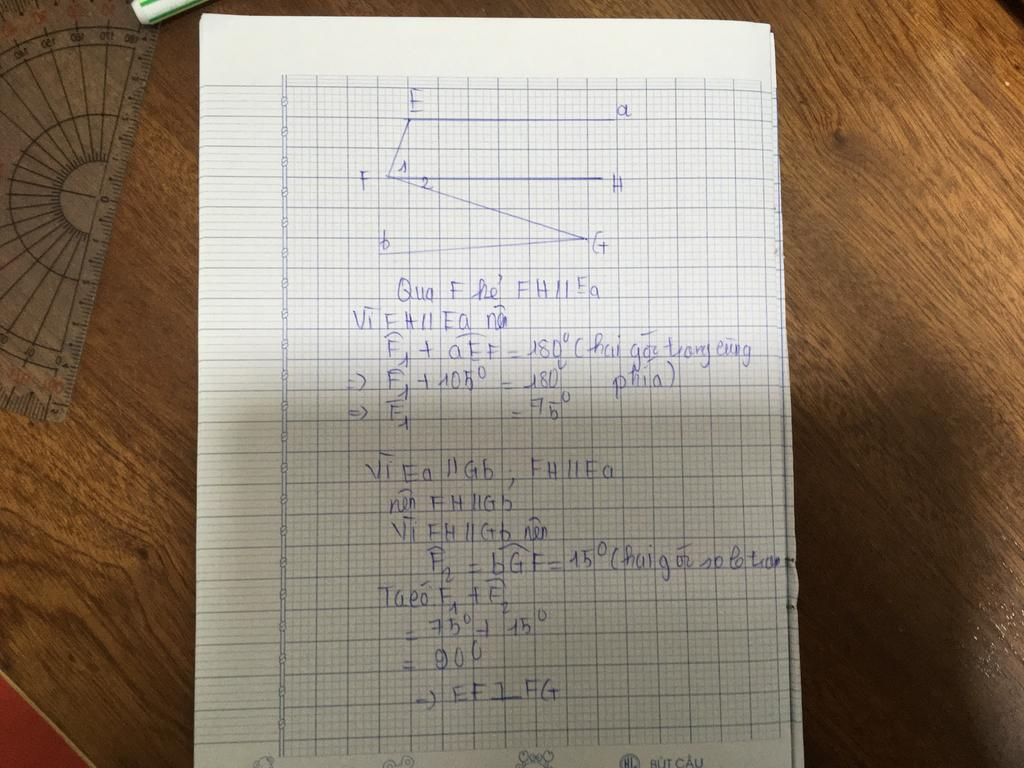 E a
F 1 2 H
b G
Qua F kẻ FH // Ea
Vì FH // Ea nên
F̂₁ + aÊF = 180⁰ (hai góc trong cùng
=> F̂₁ + 105⁰ = 180⁰ phía)
=> F̂₁ = 75⁰
Vì Ea // Gb ; FH // Ea
nên FH // Gb
Vì FH // Gb nên
F̂₂ = bĜF = 15⁰ (hai góc so le tron
Ta có F̂₁ + F̂₂
= 75⁰ + 15⁰
= 90⁰
=> EF ⊥ FG
BÚT CÂU